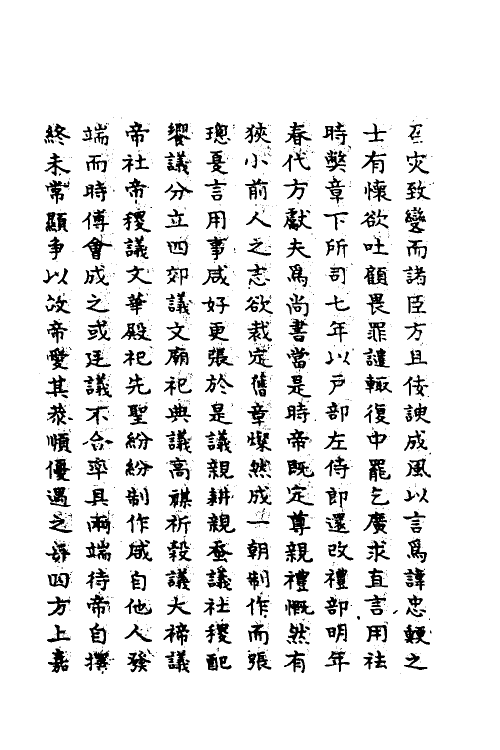 召灾致變而諸臣方且佞諛成風以言爲諱忠鯁之
士有懷欲吐顧畏罪譴輒復中罷乞廣求直言用祛
時弊章下所司七年以戶部左侍郎還改禮部明年
春代方獻夫爲尚書當是時帝既定尊親禮慨然有
狹小前人之志欲裁定舊章燦然成一朝制作而張
璁夏言用事咸好更張於是議親耕親蚕議社稷配
饗議分立四郊議文廟祀典議高禖祈穀議大禘議
帝社帝稷議文華殿祀先聖紛紛制作咸自他人發
端而時傅會成之或廷議不合率具兩端待帝自擇
終未常顯爭以故帝愛其恭順優遇之每四方上嘉